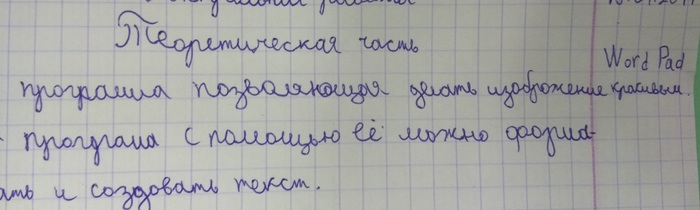 Теоретическая часть
Word Pad
программа позволяющая делать изображение красивым.
програма с помощью её можно форма-
ать и создовать текст.